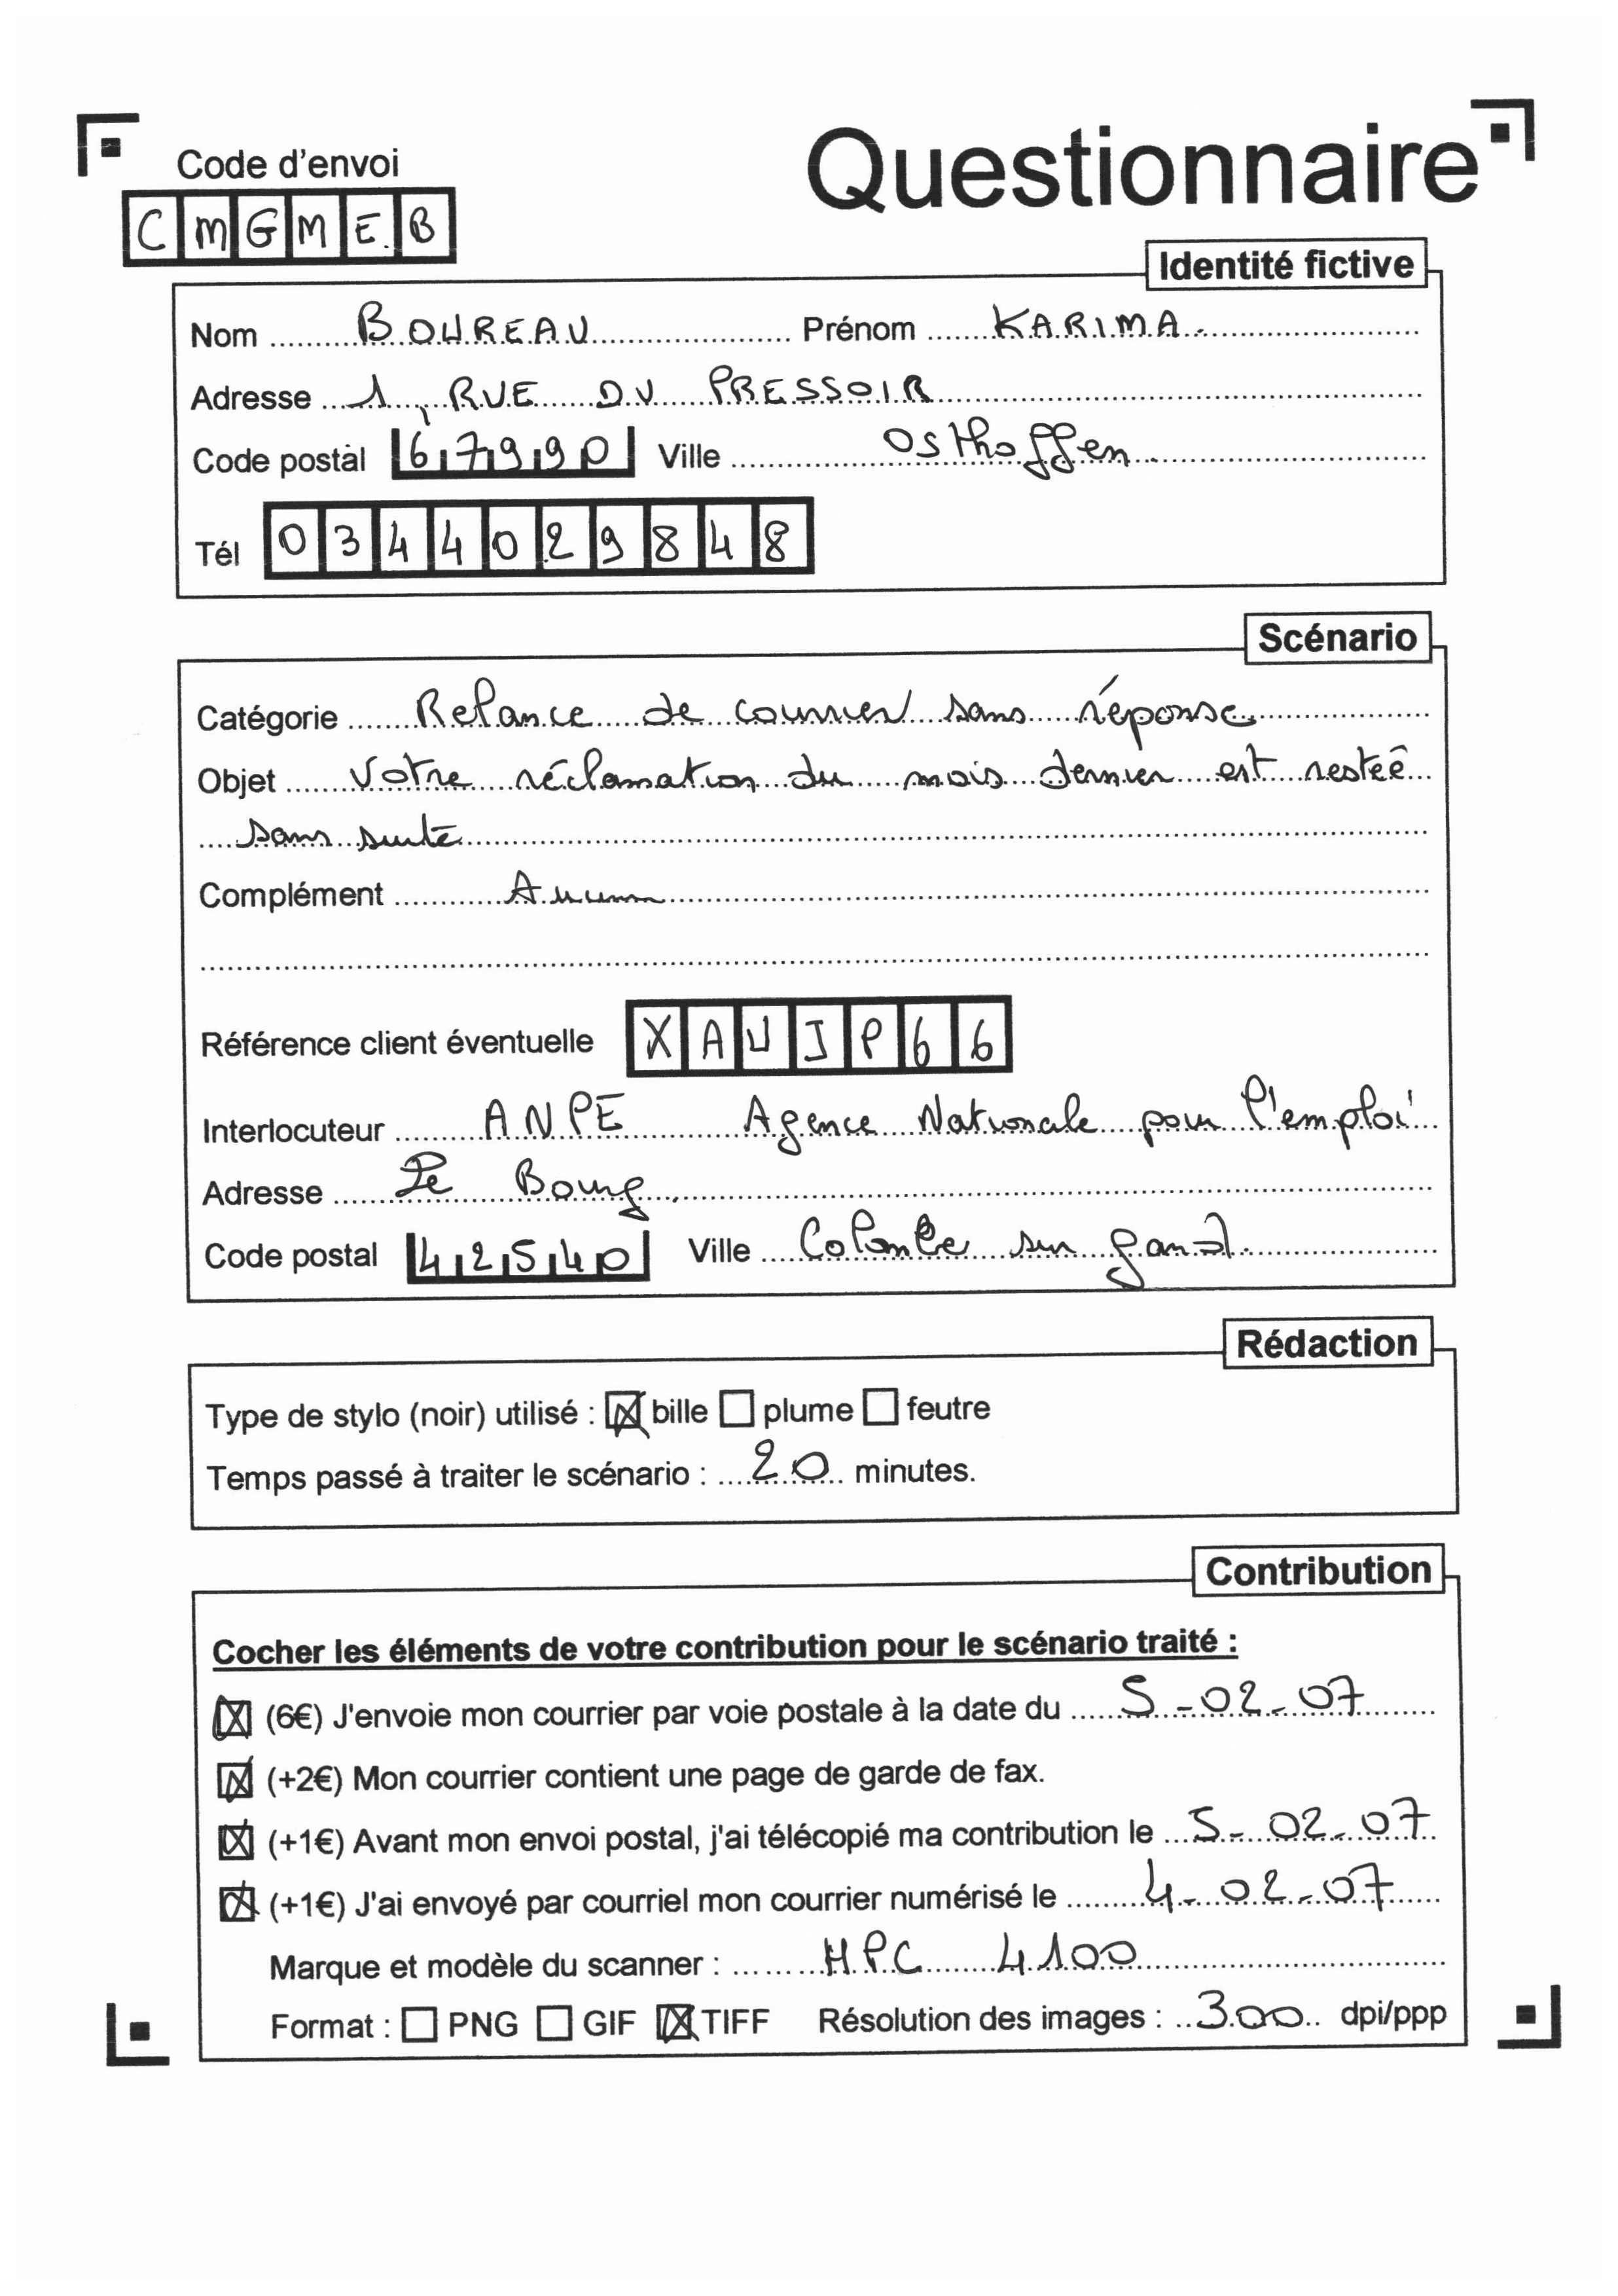 Code d'envoi
CMGMEB
Questionnaire
Identité fictive
Nom BOUREAU Prénom KARIMA.
Adresse 1, RUE DU PRESSOIR
Code postal 67990 Ville Osthoffen.
Tél 0344029848
Scénario
Catégorie Relance de courrier sans réponse
Objet Votre réclamation du mois dernier est restée
sans suite
Complément Aucun
Référence client éventuelle XAUJP66
Interlocuteur ANPE Agence Nationale pour l'emploi
Adresse Le Bourg.
Code postal 42540 Ville sur gand.
Rédaction
Type de stylo (noir) utilisé : ☒ bille ☐ plume ☐ feutre
Temps passé à traiter le scénario : 20 minutes.
Contribution
Cocher les éléments de votre contribution pour le scénario traité :
☒ (6€) J'envoie mon courrier par voie postale à la date du 5-02-07
☒ (+2€) Mon courrier contient une page de garde de fax.
☒ (+1€) Avant mon envoi postal, j'ai télécopié ma contribution le 5-02-07
☒ (+1€) J'ai envoyé par courriel mon courrier numérisé le 4-02-07
Marque et modèle du scanner : HPC 4100
Format : ☐ PNG ☐ GIF ☒ TIFF Résolution des images : 300 dpi/ppp